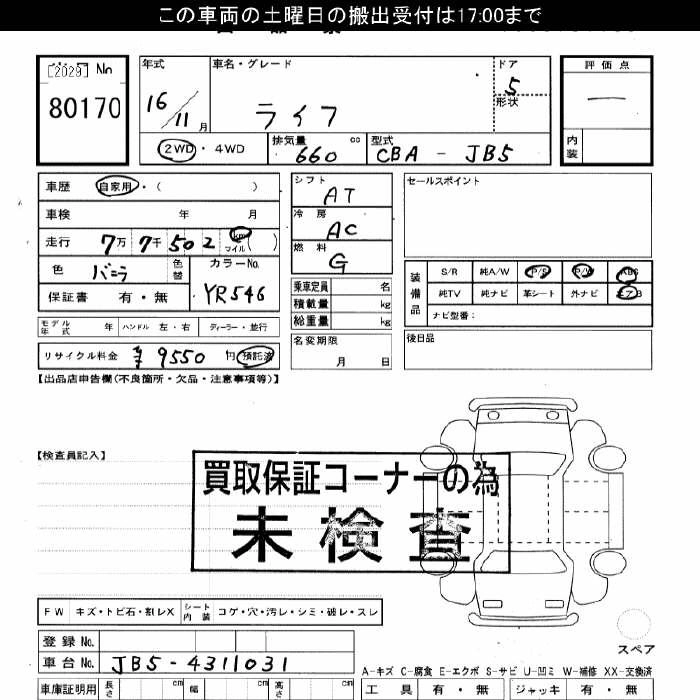 この車両の土曜日の搬出受付は17:00まで
[2029] No
80170
年式 車名・グレード ドア 評価点
16/11月 ライフ 5 —
形状
2WD・4WD 排気量 660 cc 型式 CBA - JB5 内装
車歴 自家用・( ) シフト AT セールスポイント
車検 年 月 冷房 AC
走行 7万7千502 km マイル ( ) 燃料 G
色 バニラ 色替 カラーNo. YR546 乗車定員 名 装備品 S/R 純A/W P/S P/W ABS
保証書 有・無 積載量 kg 純TV 純ナビ 革シート 外ナビ エアB
総重量 kg ナビ型番:
モデル年式 年 ハンドル 左・右 ディーラー・並行 名変期限 月 日 後日品
リサイクル料金 ¥9550 円 預託済
【出品店申告欄(不良箇所・欠品・注意事項等)】
【検査員記入】
買取保証コーナーの為
未検査
FW キズ・トビ石・割レX シート内装 コゲ・穴・汚レ・シミ・破レ・スレ
登録No.
スペア
車台No. JB5-4311031
A-キズ C-腐食 E-エクボ S-サビ U-凹ミ W-補修 XX-交換済
車庫証明用 長さ cm 幅 cm 高さ cm 工具 有・無 ジャッキ 有・無